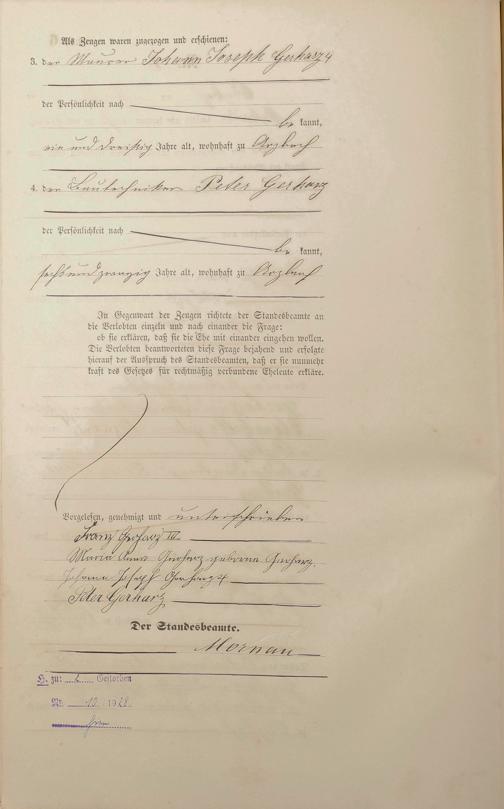 Als Zeugen waren zugezogen und erschienen:
3. der Maurer Johann Joseph Gerharz 4
der Persönlichkeit nach
be kannt,
ein und dreißig Jahre alt, wohnhaft zu Arzbach
4. der Bautechniker Peter Gerharz
der Persönlichkeit nach
be kannt,
sechsundzwanzig Jahre alt, wohnhaft zu Arzbach
In Gegenwart der Zeugen richtete der Standesbeamte an
die Verlobten einzeln und nach einander die Frage:
ob sie erklären, daß sie die Ehe mit einander eingehen wollen.
Die Verlobten beantworteten diese Frage bejahend und erfolgte
hierauf der Ausspruch des Standesbeamten, daß er sie nunmehr
kraft des Gesetzes für rechtmäßig verbundene Eheleute erkläre.
Vorgelesen, genehmigt und unterschrieben
Franz Gerharz IV.
Maria Anna Gerharz geborne Gerharz.
Johann Joseph Gerharz 4
Peter Gerharz
Der Standesbeamte.
Mornau
H. zu: Gestorben
Nr. 19